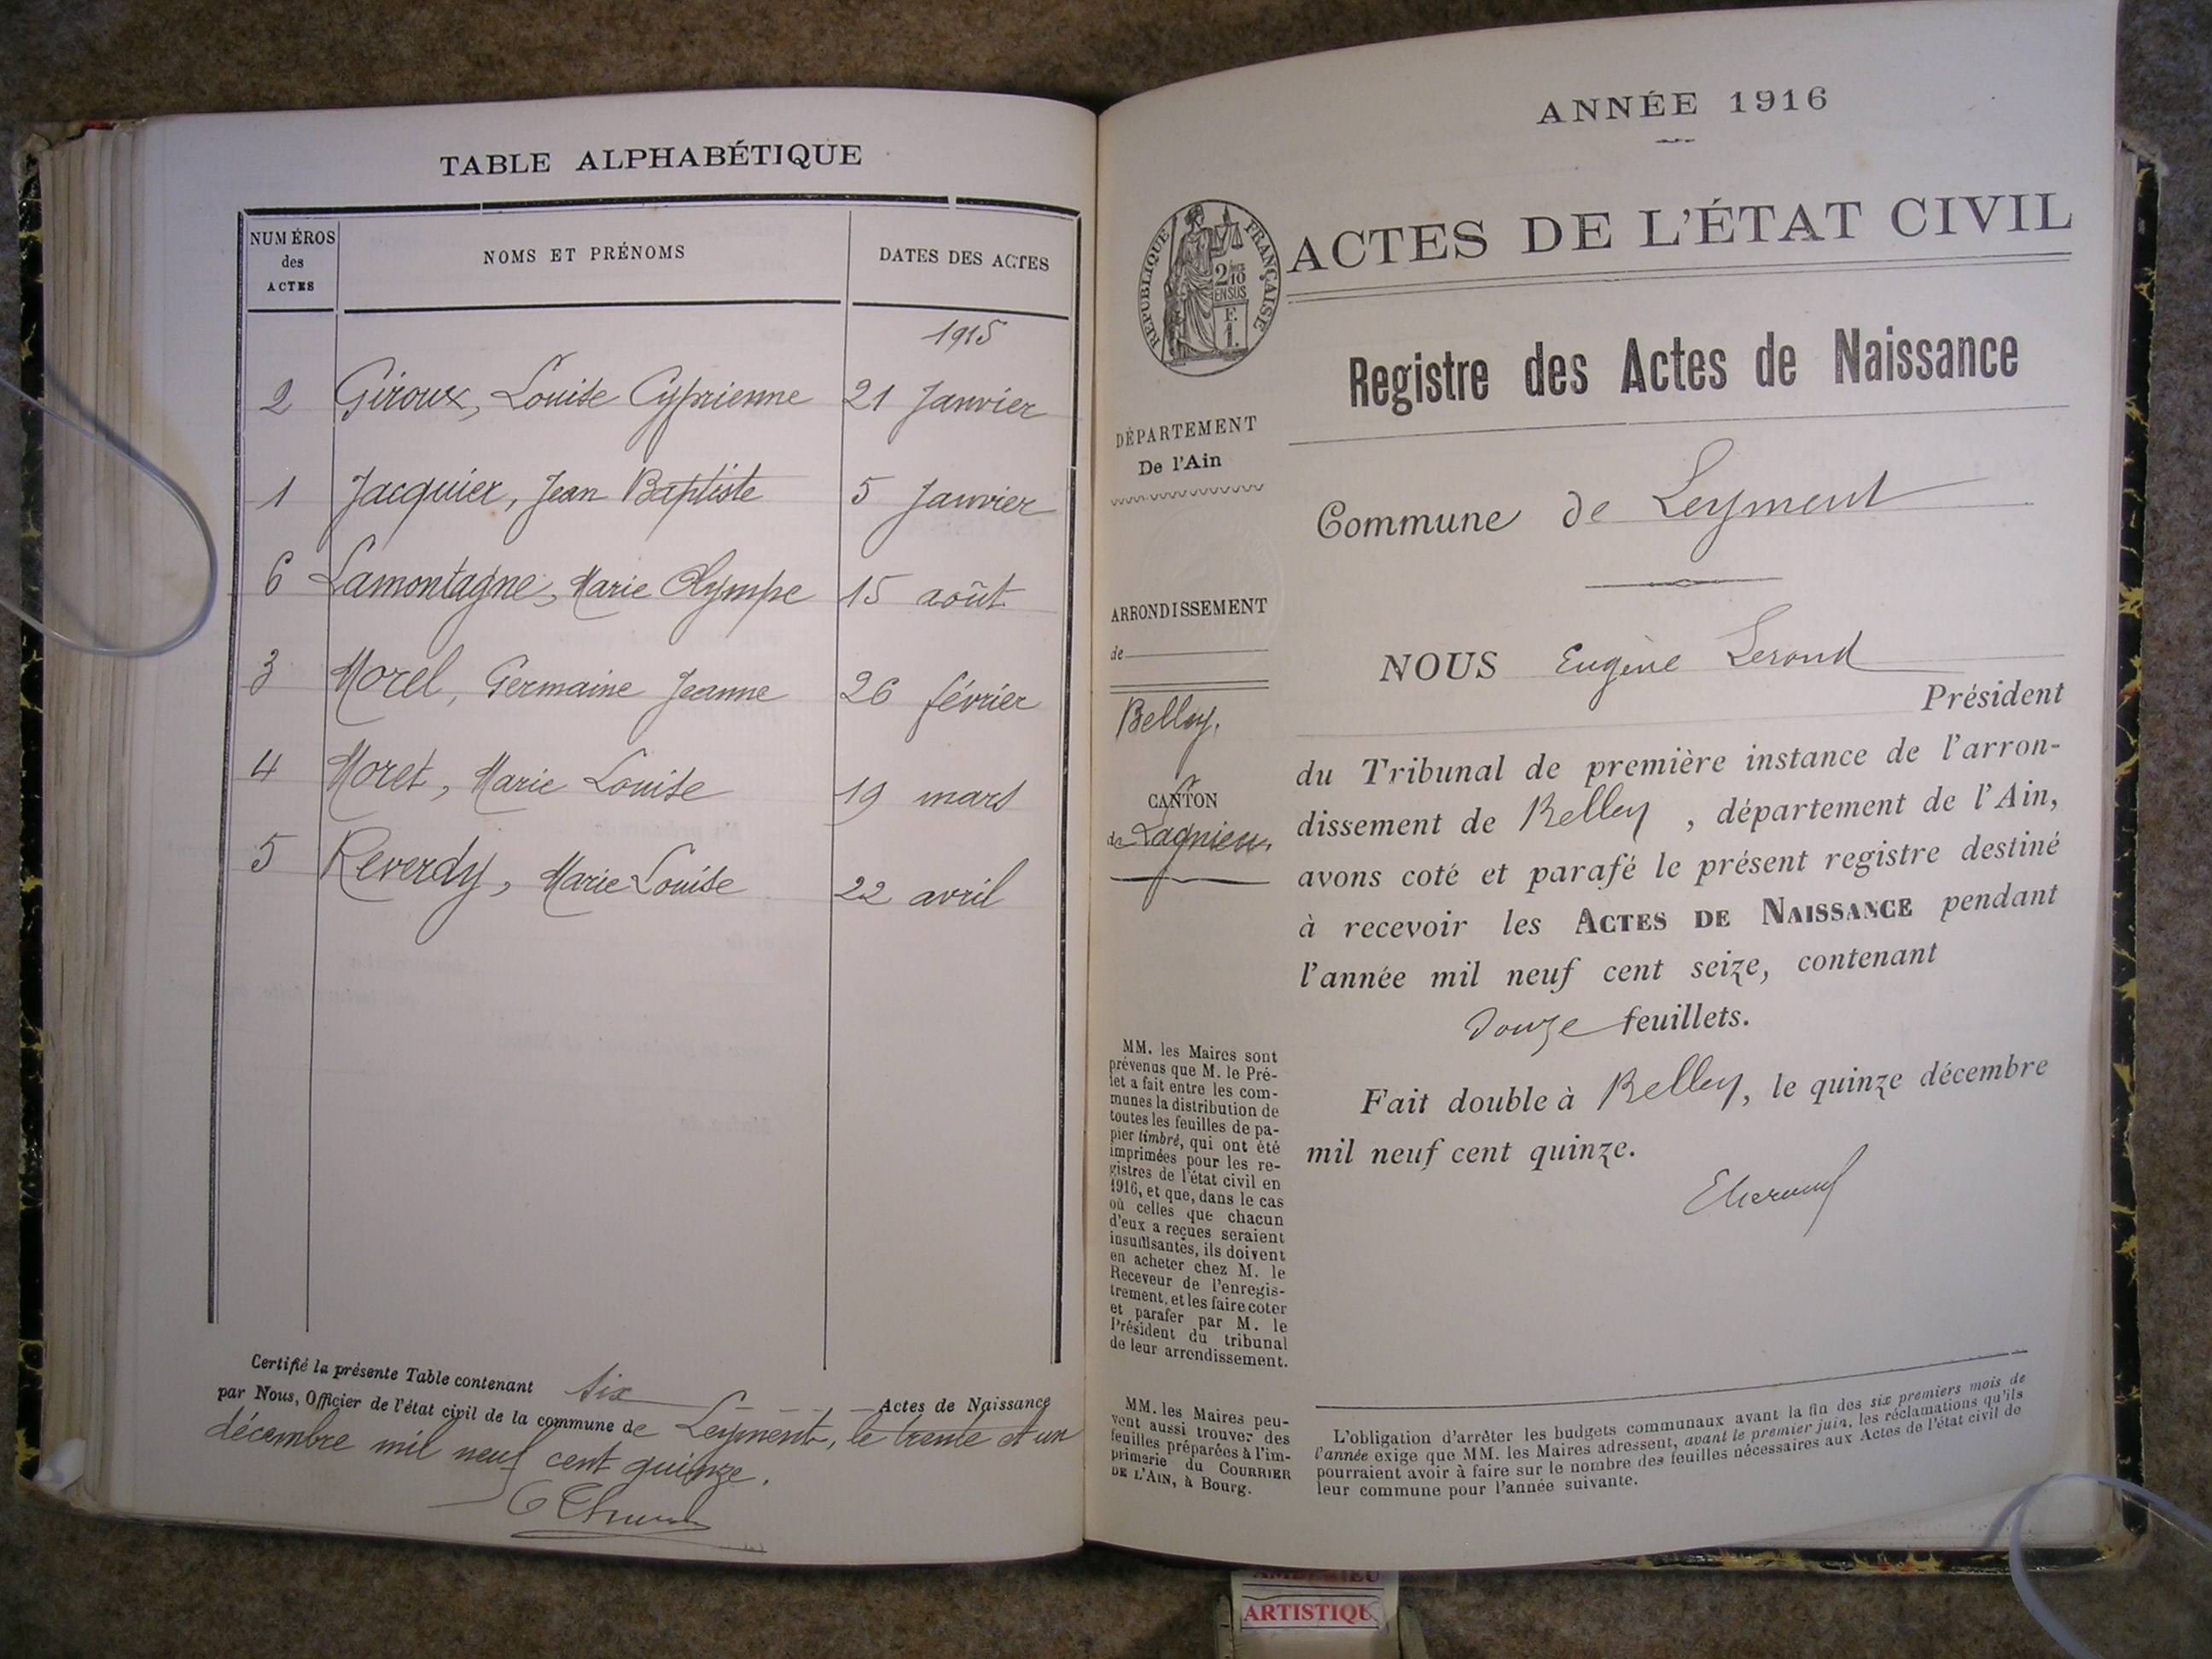 TABLE ALPHABÉTIQUE
NUMÉROS
des
ACTES
NOMS ET PRÉNOMS
DATES DES ACTES
1915
2 Giroux, Louise Cyprienne 21 Janvier
1 Jacquier, Jean Baptiste 5 Janvier
6 Lamontagne, Marie Olympe 15 août
3 Morel, Germaine Jeanne 26 février
4 Moret, Marie Louise 19 mars
5 Reverdy, Marie Louise 22 avril
Certifié la présente Table contenant six Actes de Naissance
par Nous, Officier de l'état civil de la commune de Leyment, le trente et un
décembre mil neuf cent quinze.
ANNÉE 1916
RÉPUBLIQUE FRANÇAISE
2/10
EN SUS
F.
1.
ACTES DE L'ÉTAT CIVIL
Registre des Actes de Naissance
DÉPARTEMENT
De l'Ain
Commune de Leyment
ARRONDISSEMENT
de
Belley.
CANTON
de Lagnieu.
NOUS Eugène
Président
du Tribunal de première instance de l'arron-
dissement de Belley, département de l'Ain,
avons coté et parafé le présent registre destiné
à recevoir les ACTES DE NAISSANCE pendant
l'année mil neuf cent seize, contenant
douze feuillets.
Fait double à Belley, le quinze décembre
mil neuf cent quinze.
MM. les Maires sont
prévenus que M. le Pré-
fet a fait entre les com-
munes la distribution de
toutes les feuilles de pa-
pier timbré, qui ont été
imprimées pour les re-
gistres de l'état civil en
1916, et que, dans le cas
où celles que chacun
d'eux a reçues seraient
insuffisantes, ils doivent
en acheter chez M. le
Receveur de l'enregis-
trement, et les faire coter
et parafer par M. le
Président du tribunal
de leur arrondissement.
MM. les Maires peu-
vent aussi trouver des
feuilles préparées à l'im-
primerie du COURRIER
DE L'AIN, à Bourg.
L'obligation d'arrêter les budgets communaux avant la fin des six premiers mois de
l'année exige que MM. les Maires adressent, avant le premier juin, les réclamations qu'ils
pourraient avoir à faire sur le nombre des feuilles nécessaires aux Actes de l'état civil de
leur commune pour l'année suivante.
ARTISTIQU